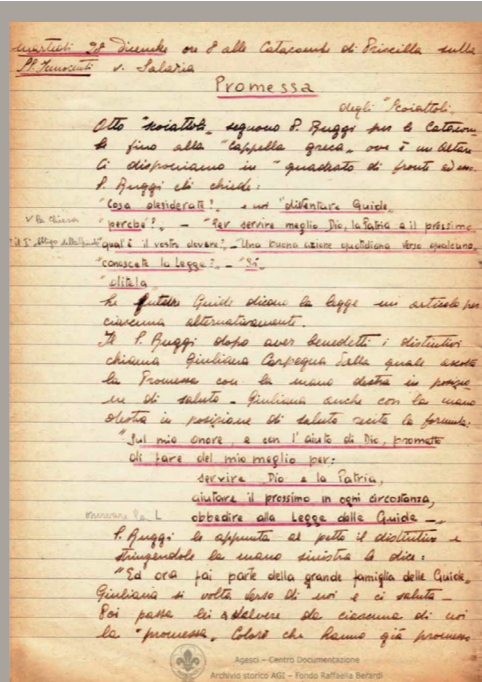 martedì 28 Dicembre ore 8 alle Catacombe di Priscilla sulla
SS. Innocenti v. Salaria
Promessa
degli "Scoiattoli„
Otto "scoiattoli„ seguono P. Ruggi per le Catacom-
be fino alla "Cappella greca„ ove è un altare
Ci disponiamo in "quadrato di fronte ad esso.
P. Ruggi chiede:
"Cosa desiderate?„ e noi "diventare Guide„
"perché?„ - "Per servire meglio Dio, la Patria e il prossimo„
"qual'è il vostro dovere? - "Una buona azione quotidiana verso qualcuno„
"conoscete la Legge?„ - "Sì„
"ditela„
Le Guide dicono la legge un articolo per
ciascuna alternativamente.
P. Ruggi dopo aver benedetti i distintivi
chiama Giuliana Carpegna quale
la Promessa con la mano destra in posizio-
ne di saluto - Giuliana anche con la mano
destra in posizione di saluto recita la formula:
"Sul mio onore, e con l'aiuto di Dio, prometto
di fare del mio meglio per:
servire Dio e la Patria,
aiutare il prossimo in ogni circostanza,
obbedire alla Legge delle Guide -„
P. Ruggi le appunta al petto il distintivo e
stringendole la mano sinistra le dice:
"Ed ora fai parte della grande famiglia delle Guide„
Giuliana si volta verso di noi e ci saluta -
Poi passa lei a da ciascuna di noi
la "promessa„ Coloro che hanno già promesso
Agesci – Centro Documentazione
Archivio storico AGI – Fondo Raffaella Berardi